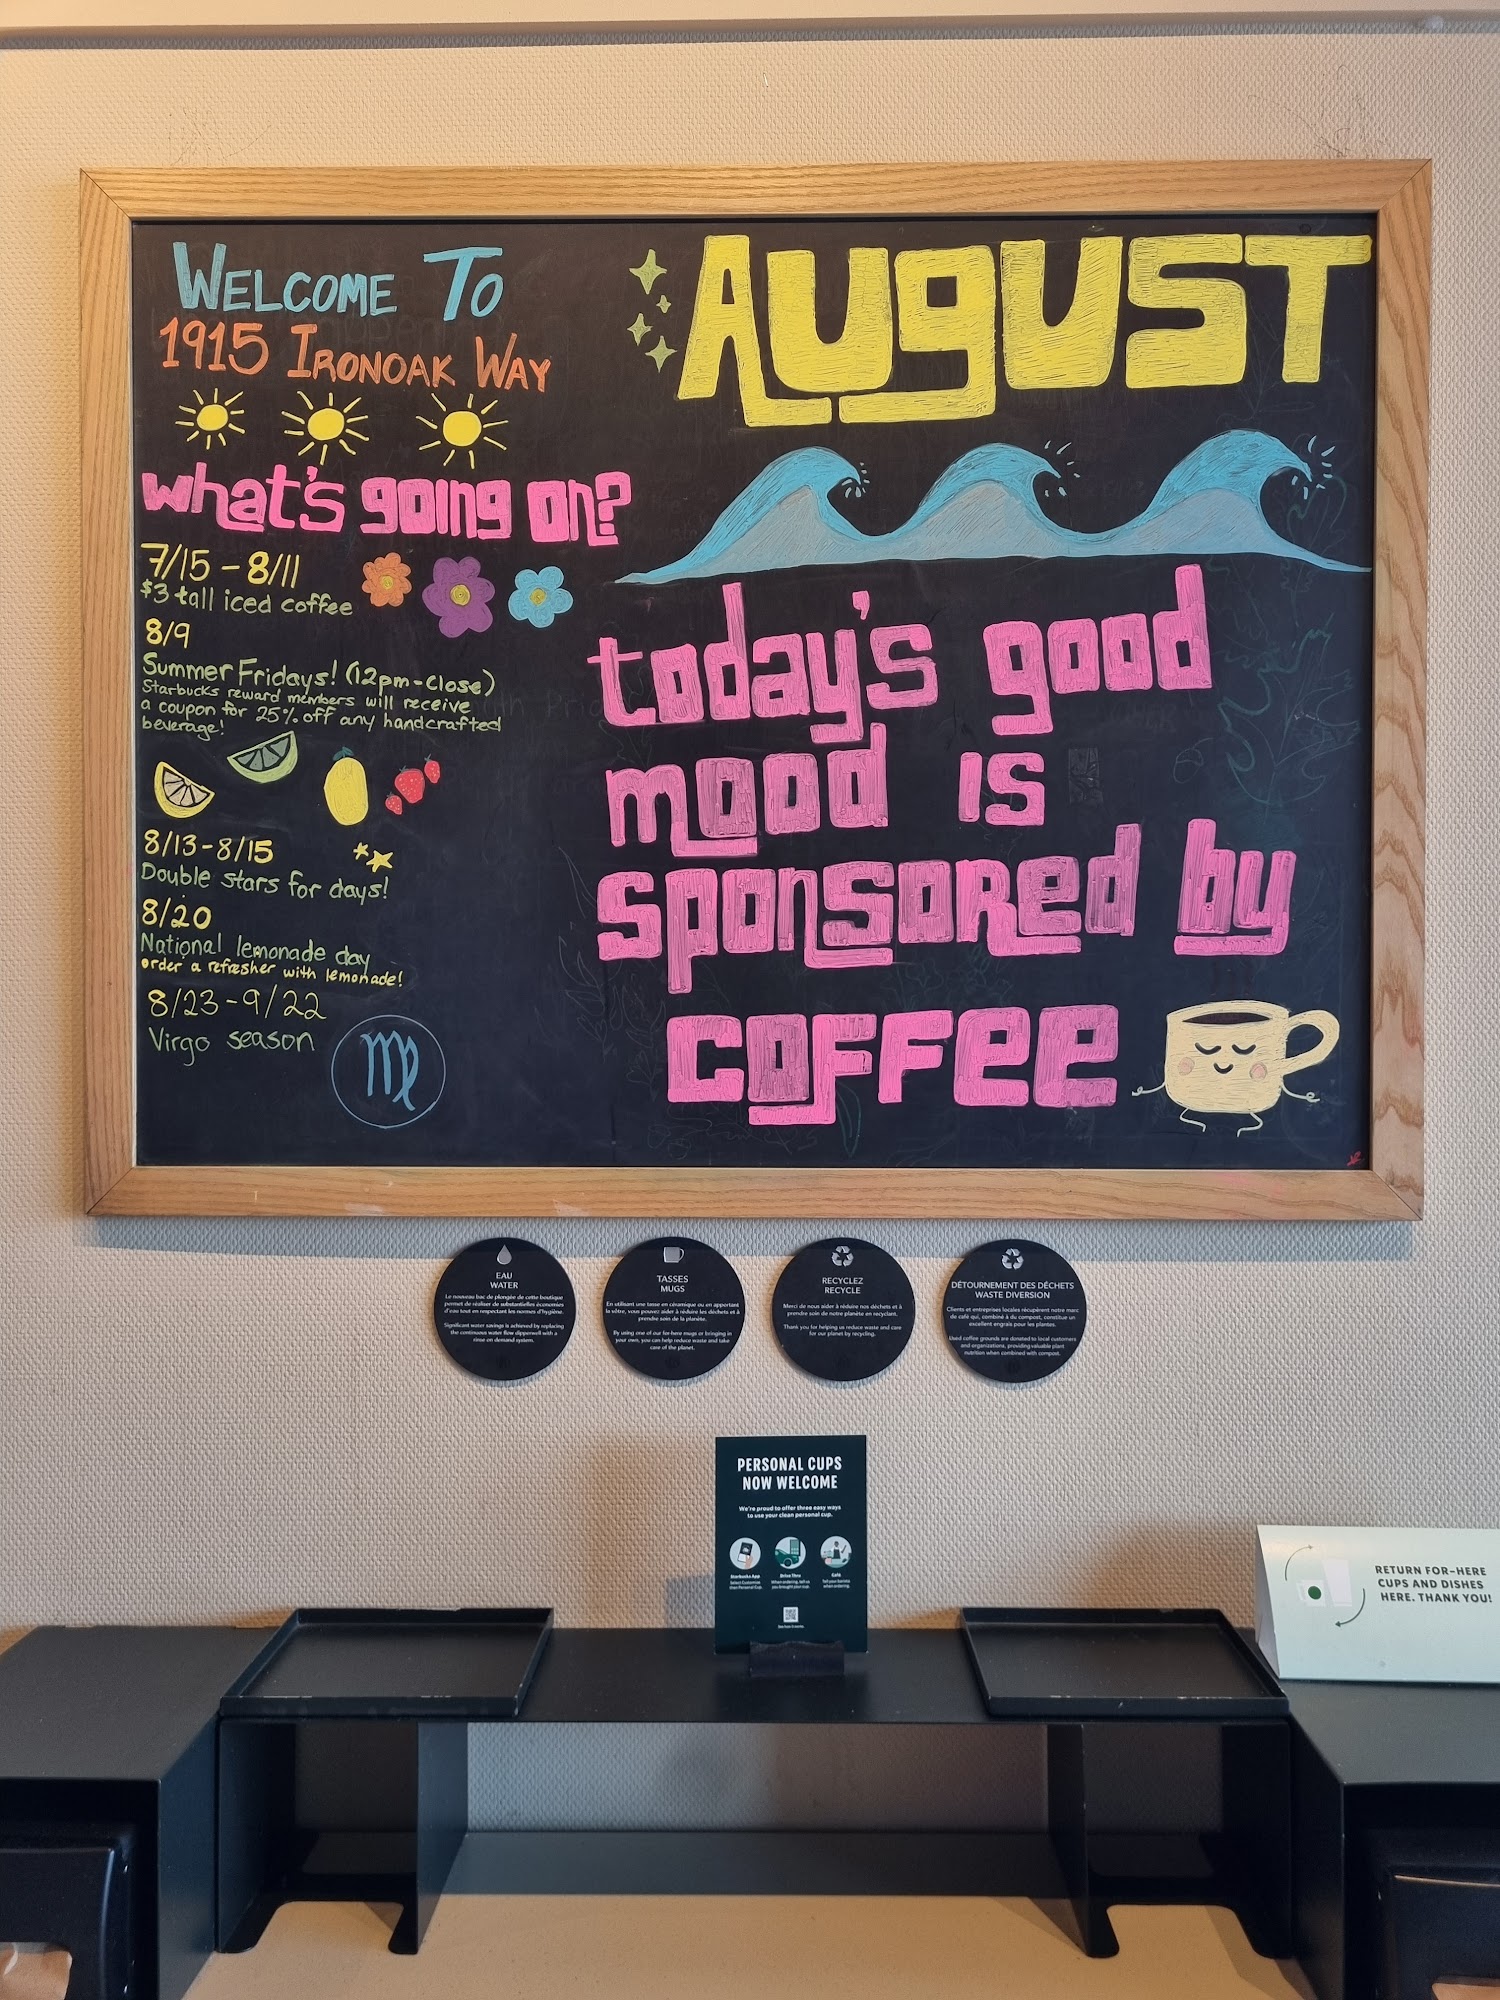 WELCOME TO
1915 IRONOAK WAY
what's going on?
7/15 - 8/11
$3 tall iced coffee
8/9
Summer Fridays! (12pm-Close)
Starbucks reward members will receive
a coupon for 25% off any handcrafted
beverage!
8/13-8/15
Double stars for days!
8/20
National lemonade day
order a refresher with lemonade!
8/23-9/22
Virgo season
AUgUST
today's good
mood is
sponsored by
coffee
EAU
WATER
Le nouveau bac de plongée de cette boutique
permet de réaliser de substantielles économies
d'eau tout en respectant les normes d'hygiène.
Significant water savings is achieved by replacing
the continuous water flow dipperwell with a
rinse on demand system.
TASSES
MUGS
En utilisant une tasse en céramique ou en apportant
la vôtre, vous pouvez aider à réduire les déchets et à
prendre soin de la planète.
By using one of our for-here mugs or bringing in
your own, you can help reduce waste and take
care of the planet.
RECYCLEZ
RECYCLE
Merci de nous aider à réduire nos déchets et à
prendre soin de notre planète en recyclant.
Thank you for helping us reduce waste and care
for our planet by recycling.
DÉTOURNEMENT DES DÉCHETS
WASTE DIVERSION
Clients et entreprises locales récupèrent notre marc
de café qui, combiné à du compost, constitue un
excellent engrais pour les plantes.
Used coffee grounds are donated to local customers
and organizations, providing valuable plant
nutrition when combined with compost.
PERSONAL CUPS
NOW WELCOME
We're proud to offer three easy ways
to use your clean personal cup.
Starbucks App
Select Customize
then Personal Cup.
Drive Thru
When ordering, tell us
you brought your cup.
Café
Tell your barista
when ordering.
RETURN FOR-HERE
CUPS AND DISHES
HERE. THANK YOU!